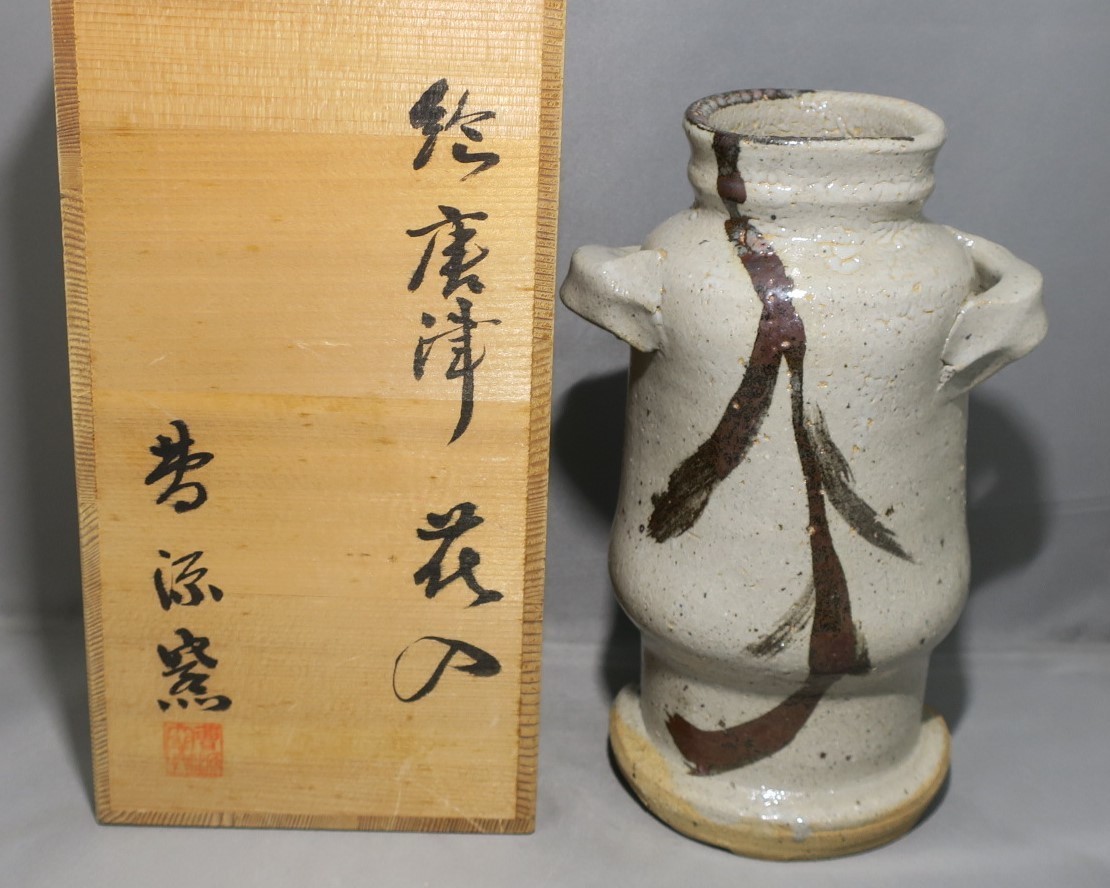 絵唐津 花入
曹源窯